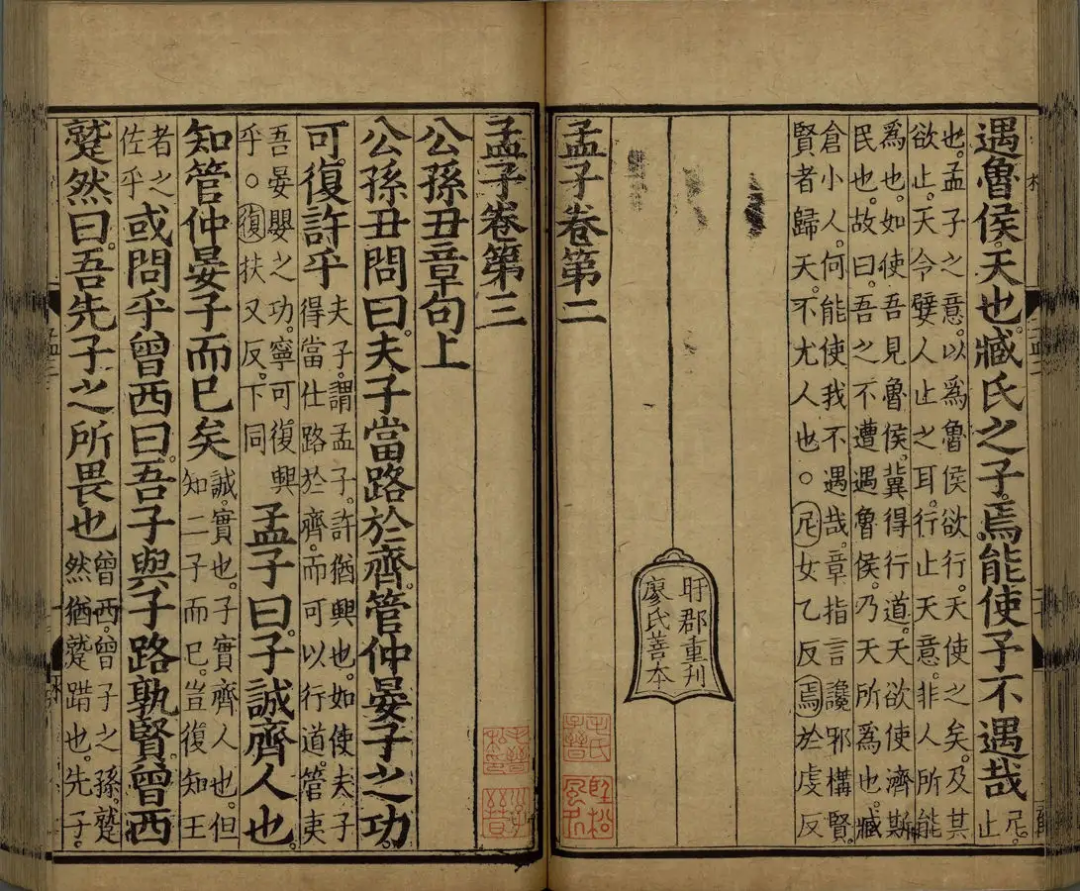 遇魯侯。天也。臧氏之子。焉能使予不遇哉
尼。
止
也。孟子之意。以爲魯侯欲行。天使之矣。及其
欲止。天令嬖人止之耳。行止天意。非人所能
爲也。如使吾見魯侯。冀得行道。天欲使濟斯
民也。故曰。吾之不遭遇魯侯。乃天所爲也。臧
倉小人。何能使我不遇哉。章指言讒邪構賢。
賢者歸天。不尤人也。○尼女乙反焉於虔反
盱郡重刊
廖氏善本
孟子卷第二
孟子卷第三
公孫丑章句上
公孫丑問曰。夫子當路於齊。管仲晏子之功。
可復許乎
夫子。謂孟子。許猶興也。如使夫子
得當仕路於齊。而可以行道。管夷
吾晏嬰之功。寧可復興
乎。○復扶又反。下同
孟子曰。子誠齊人也。
知管仲晏子而已矣
誠。實也。子實齊人也。但
知二子而已。豈復知王
者之
佐乎
或問乎曾西曰。吾子與子路孰賢。曾西
蹵然曰。吾先子之所畏也
曾西。曾子之孫。蹵
然猶蹵踖也。先子。